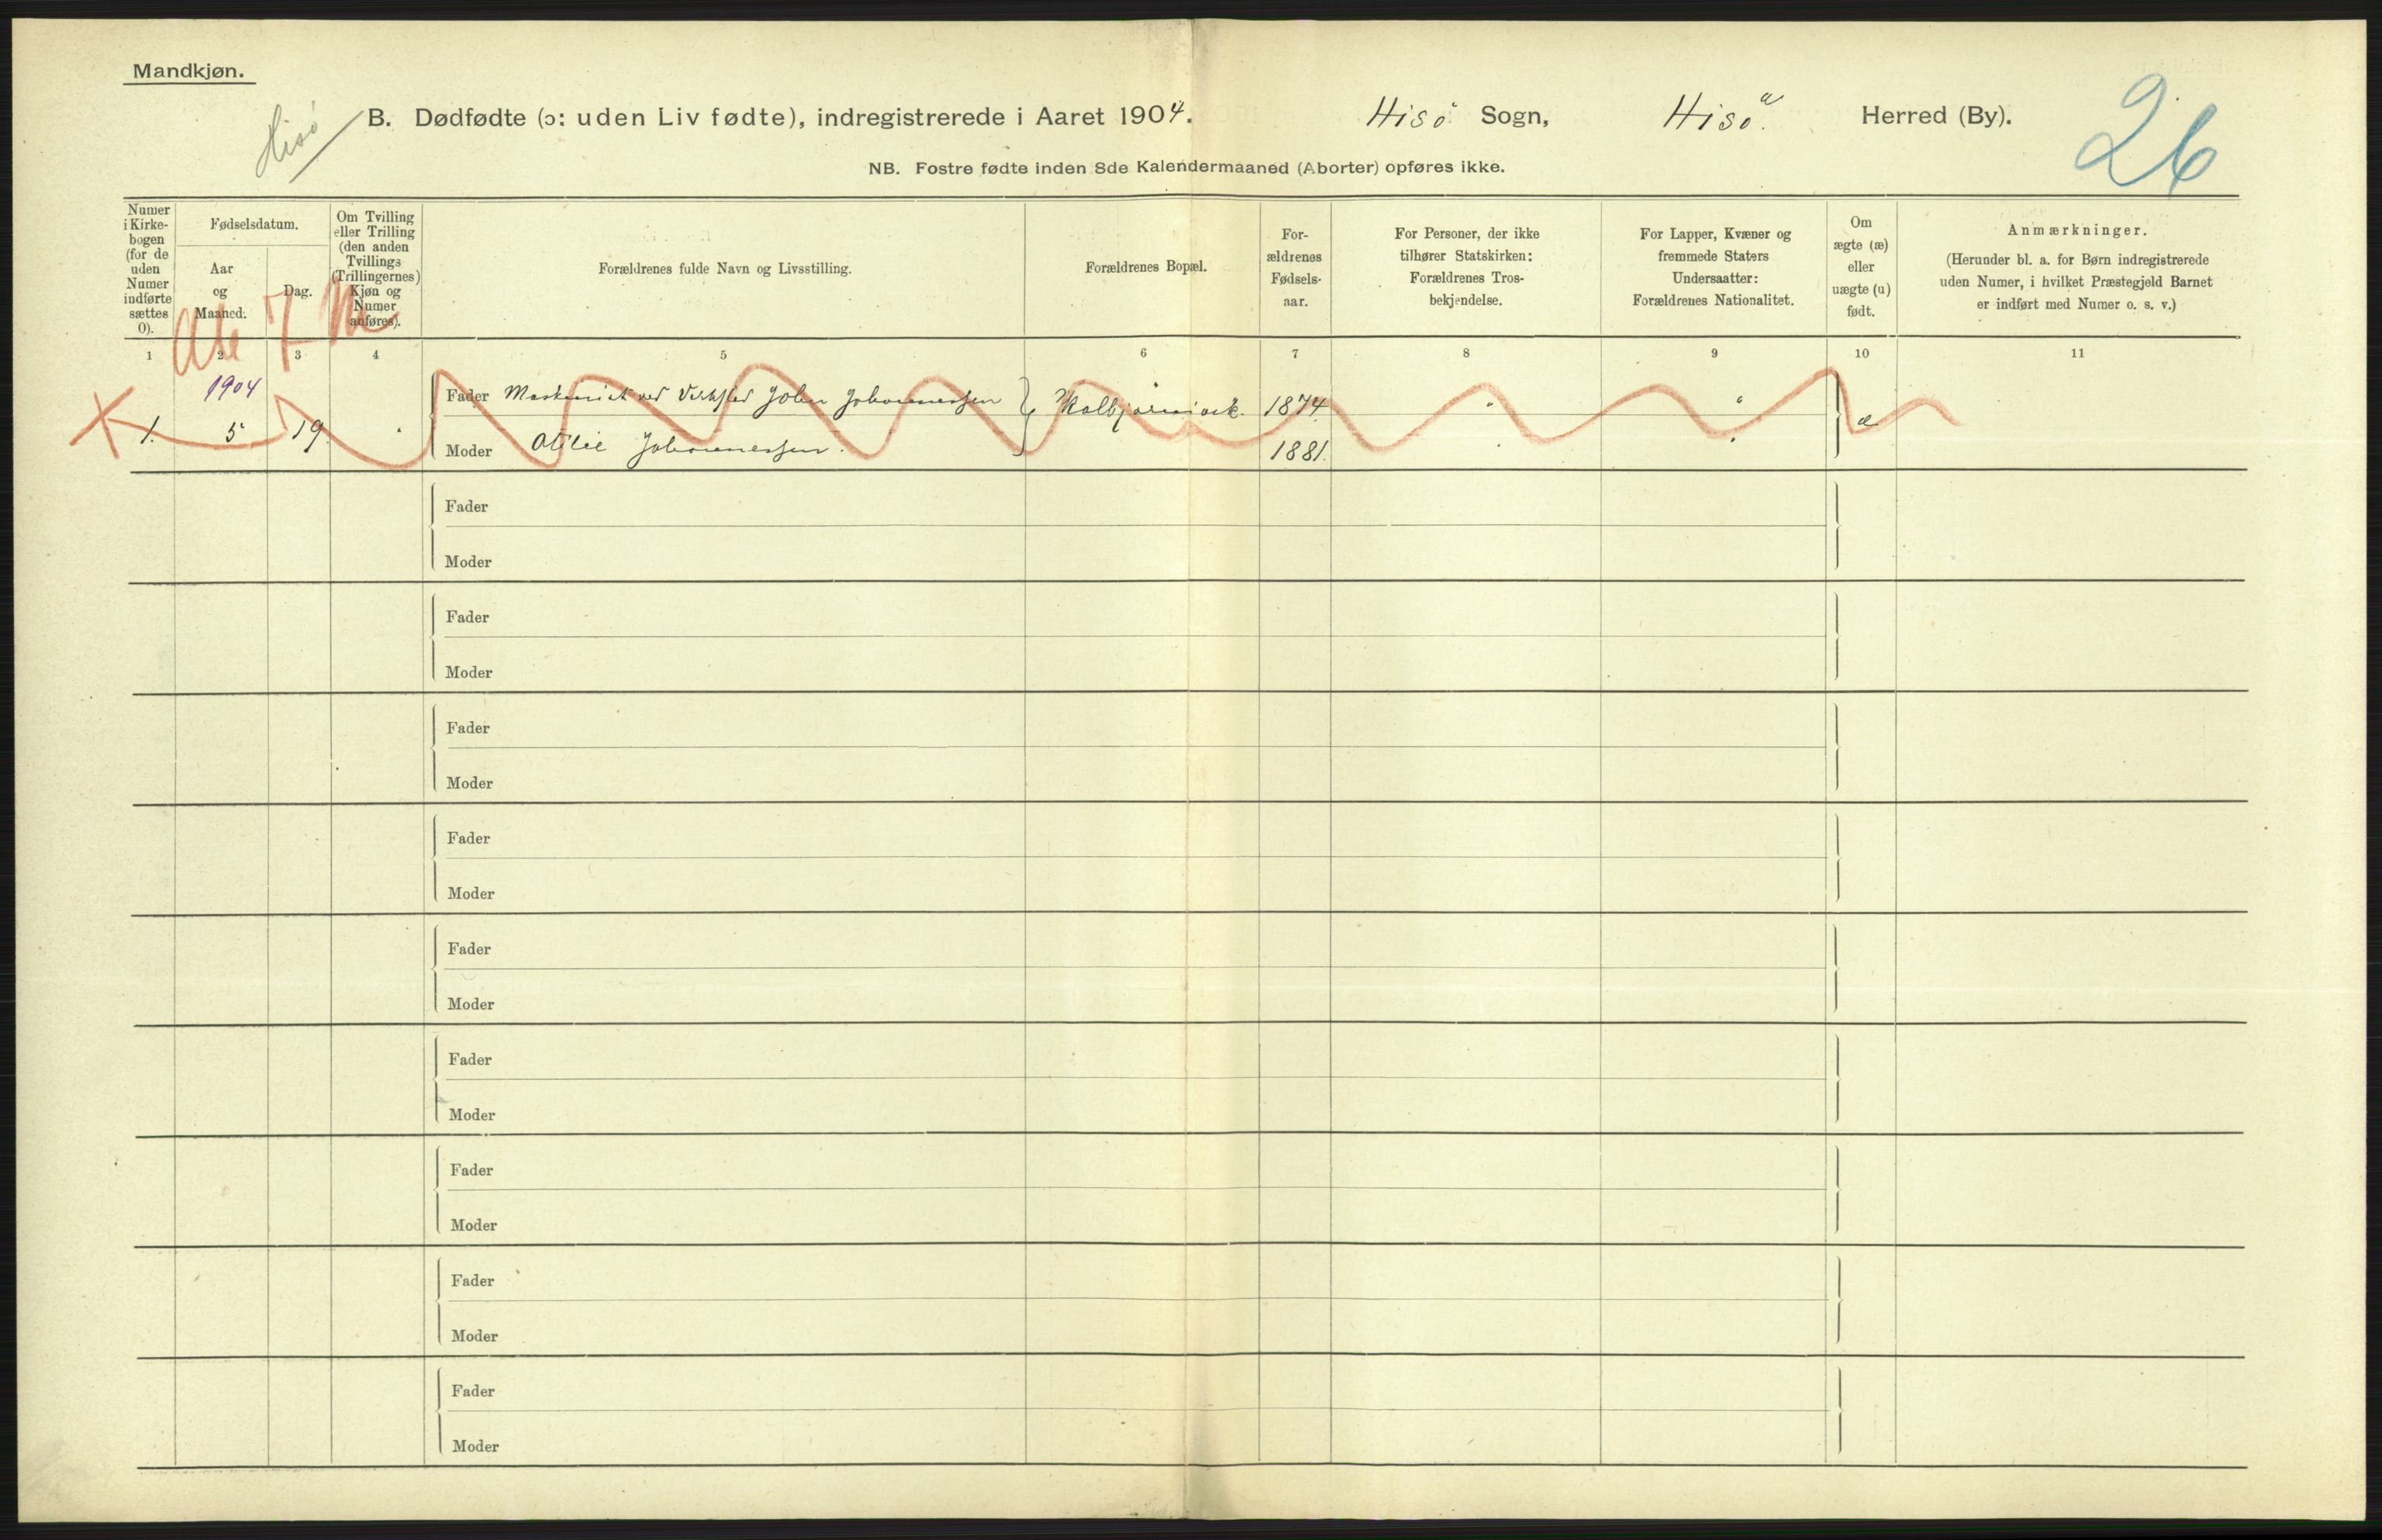 Mandkjøn.
Hisö
B. Dødfødte (ɔ: uden Liv fødte), indregistrerede i Aaret 1904. Hisö Sogn, Hisö Herred (By).
26
NB. Fostre fødte inden 8de Kalendermaaned (Aborter) opføres ikke.
Numer i Kirke-bogen (for de uden Numer indførte sættes 0).
Fødselsdatum.
Aar og Maaned.
Dag.
Om Tvilling eller Trilling (den anden Tvillings (Trillingernes) Kjøn og Numer anføres).
Forældrenes fulde Navn og Livsstilling.
Forældrenes Bopæl.
For-ældrenes Fødsels-aar.
For Personer, der ikke tilhører Statskirken: Forældrenes Tros-bekjendelse.
For Lapper, Kvæner og fremmede Staters Undersaatter: Forældrenes Nationalitet.
Om ægte (æ) eller uægte (u) født.
Anmærkninger.
(Herunder bl. a. for Børn indregistrerede uden Numer, i hvilket Præstegjeld Barnet er indført med Numer o. s. v.)
1 2 3 4 5 6 7 8 9 10 11
1904
Fader Maskinist ved John Johannessen 1874
1. 5 19. " " æ
Moder Otilie Johannessen. 1881.
Fader
Moder
Fader
Moder
Fader
Moder
Fader
Moder
Fader
Moder
Fader
Moder
Fader
Moder
Fader
Moder
Fader
Moder